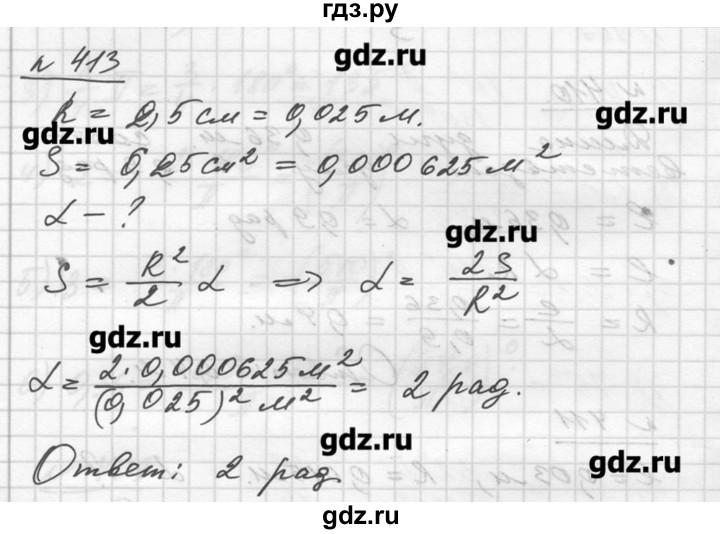 гдз.ру
gdz.ru
n 413
R = 2,5 см = 0,025 м.
gdz.ru
gdz.ru
S = 6,25 см² = 0,000625 м²
α - ?
gdz.ru
S = R²/2 α => α = 2S/R²
gdz.ru
α = 2·0,000625 м²/(0,025)² м² = 2 рад.
gdz.ru
Ответ: 2 рад
gdz.ru
gdz.ru